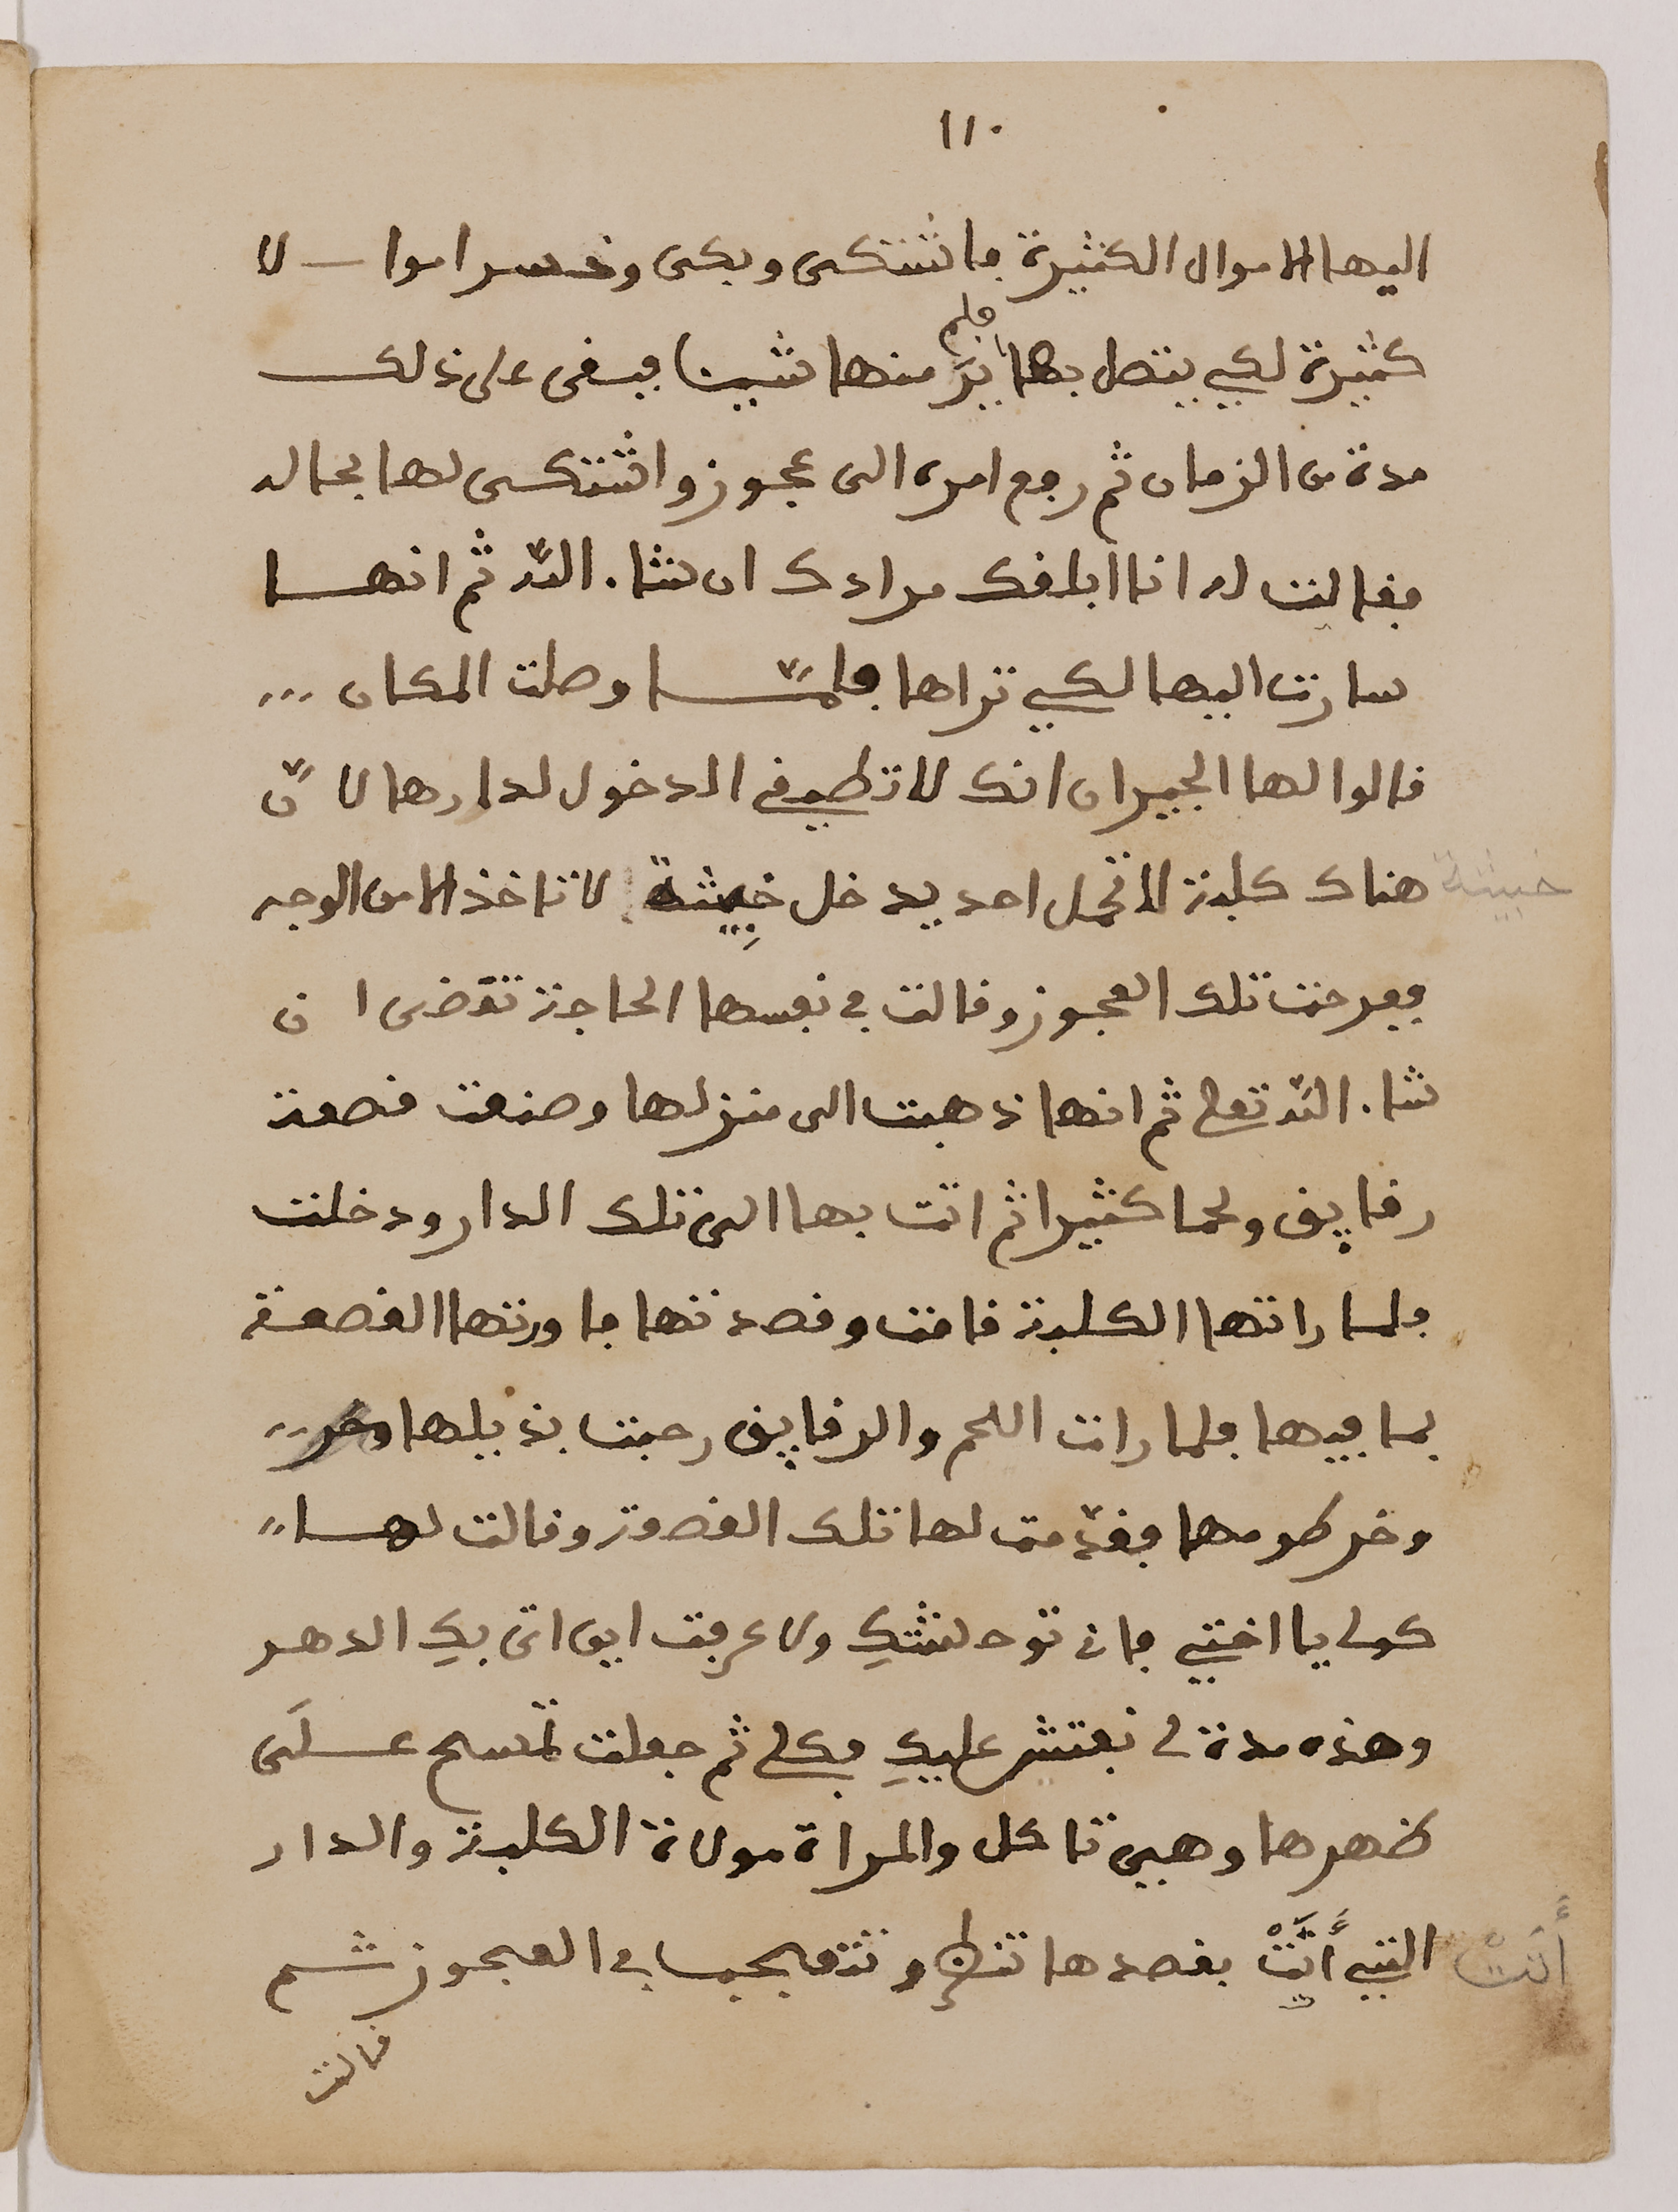 ١١٠
اليها الاموال الكثيرة فاشتكى وبكى وخسر اموا لا
كثيرة لكي يتصل بها فلم يرَ منها شيئا فبقى على ذلك
مدة من الزمان ثم رجع امره الى عجوز واشتكى لها بحاله
فقالت له انا ابلغك مرادك ان شاء اللّه ثم انهـا
سارت اليها لكي تراها فلمّـا وصلت المكان ...
قالوا لها الجيران انك لا تطيق الدخول لدارها لا نّ
خبيثة
هناك كلبة لا تخل احد يدخل خبِيثة لا تاخذ الا من الوجه
ففرحت تلك العجوز وقالت في نفسها الحاجة تقضى ا ن
شاء اللّه تعلى ثم انها ذهبت الى منزلها وصنعت قصعة
رقايق ولحما كثيرا ثم اتت بها الى تلك الدار ودخلت
فلما راتها الكلبة قامت وقصدتها فاورتها القصعة
بما فيها فلما رات اللحم والرقايق رحبت بذيلها
وخرطومها فقدّمت لها تلك القصعة وقالت لهـا
كولي يا اختي فاني توحشتكِ ولا عرفت اين اتى بكِ الدهر
وهذه مدة لي نفتش عليكِ فكلي ثم جعلت تمسح عـلَى
ظهرها وهيى تاكل والمراة مولاة الكلبة والدار
أَتَتْ
التي أَتَتْ بقصدها تنظر وتتعجب في العجوز ثـم
قالت